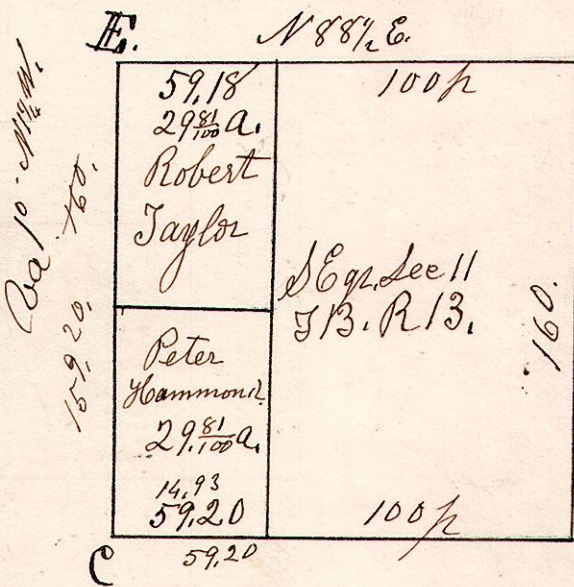 E.
N 88½ E.
59,18
29 81/100 a.
Robert
Taylor
100 p
SE qr. Sec 11
T 13. R 13.
160.
Peter
Hammond
29. 81/100 a.
14,93
59,20
100 p
C
59,20
Var 1°
160.
159,20.